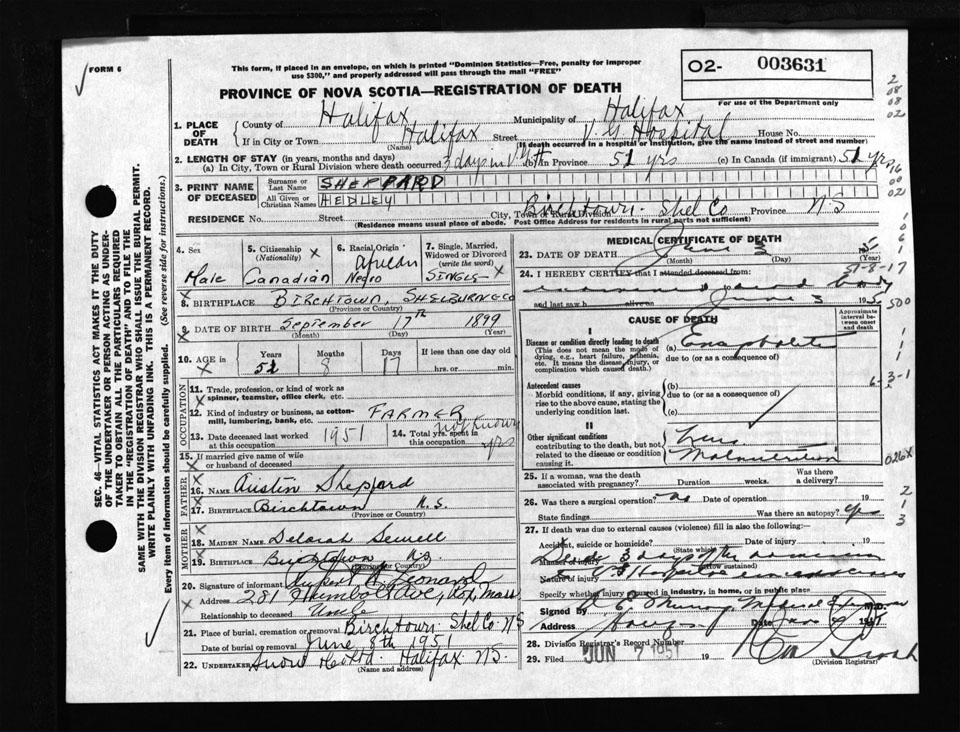 FORM 6
This form, if placed in an envelope, on which is printed "Dominion Statistics—Free, penalty for improper
use $300," and properly addressed will pass through the mail "FREE"
O2- 003631
PROVINCE OF NOVA SCOTIA—REGISTRATION OF DEATH
For use of the Department only
1. PLACE OF DEATH
County of Halifax Municipality of Halifax
If in City or Town Halifax Street V. G. Hospital House No.
(Name) (If death occurred in a hospital or institution, give the name instead of street and number)
2. LENGTH OF STAY (in years, months and days)
(a) In City, Town or Rural Division where death occurred 3 days in V.G.H. (b) In Province 51 yrs (c) In Canada (if immigrant) 51 yrs
3. PRINT NAME OF DECEASED
Surname or Last Name SHEPPARD
All Given or Christian Names HEDLEY
RESIDENCE No. Street City, Town or Rural Division Birchtown Shel Co Province N.S
(Residence means usual place of abode. Post Office Address for residents in rural parts not sufficient)
4. Sex
Male
5. Citizenship
(Nationality)
Canadian
6. Racial Origin
African
Negro
7. Single, Married,
Widowed or Divorced
(write the word)
SINGLE
8. BIRTHPLACE BIRCHTOWN, SHELBURNE CO
(Province or Country)
9. DATE OF BIRTH September 17th 1899
(Month) (Day) (Year)
10. AGE in Years Months Days If less than one day old
51 8 17 hrs. or min.
OCCUPATION
11. Trade, profession, or kind of work as
spinner, teamster, office clerk, etc.
12. Kind of industry or business, as cotton-
mill, lumbering, bank, etc. FARMER
13. Date deceased last worked
at this occupation 1951
14. Total yrs. spent in
this occupation not known yrs
15. If married give name of wife
or husband of deceased
FATHER
16. NAME Austin Sheppard
17. BIRTHPLACE Birchtown N.S.
(Province or Country)
MOTHER
18. MAIDEN NAME Delorah Sewell
19. BIRTHPLACE Birchtown N.S.
(Province or Country)
20. Signature of informant Rupert Leonard
Address 281 Humbolt Ave, Rox, Mass
Relationship to deceased Uncle
21. Place of burial, cremation or removal Birchtown Shel Co NS
Date of burial or removal June 8th 1951
22. Undertaker Snow & Co Ltd. Halifax N.S.
(Name and address)
MEDICAL CERTIFICATE OF DEATH
23. DATE OF DEATH June 3
(Month) (Day) (Year)
24. I HEREBY CERTIFY that I attended deceased from:
examined dead body
and last saw h alive on June 3
CAUSE OF DEATH
Approximate
interval between
onset
and death
I
Disease or condition directly leading to death
(This does not mean the mode of
dying, e.g., heart failure, asthenia,
etc. It means the disease, injury, or
complication which caused death.)
(a) Encephalitis
due to (or as a consequence of)
Antecedent causes
Morbid conditions, if any, giving
rise to the above cause, stating the
underlying condition last.
(b)
due to (or as a consequence of)
(c)
II
Other significant conditions
contributing to the death, but not
related to the disease or condition
causing it.
Malnutrition
25. If a woman, was the death
associated with pregnancy? Duration weeks. Was there
a delivery?
26. Was there a surgical operation? no Date of operation 19
State findings Was there an autopsy? yes
27. If death was due to external causes (violence) fill in also the following:
Accident, suicide or homicide? Date of injury 19
(State which)
Manner of injury
(How sustained)
Nature of injury
Specify whether injury occurred in industry, in home, or in public place
Signed by M.D.
Address Halifax Date 19
28. Division Registrar's Record Number
29. Filed JUN 7 1951 19
(Division Registrar)
SEC. 46—VITAL STATISTICS ACT MAKES IT THE DUTY
OF THE UNDERTAKER OR PERSON ACTING AS UNDER-
TAKER TO OBTAIN ALL THE PARTICULARS REQUIRED
IN THE "REGISTRATION OF DEATH" AND TO FILE THE
SAME WITH THE DIVISION REGISTRAR WHO SHALL ISSUE THE BURIAL PERMIT.
WRITE PLAINLY WITH UNFADING INK. THIS IS A PERMANENT RECORD.
Every item of information should be carefully supplied. (See reverse side for instructions.)